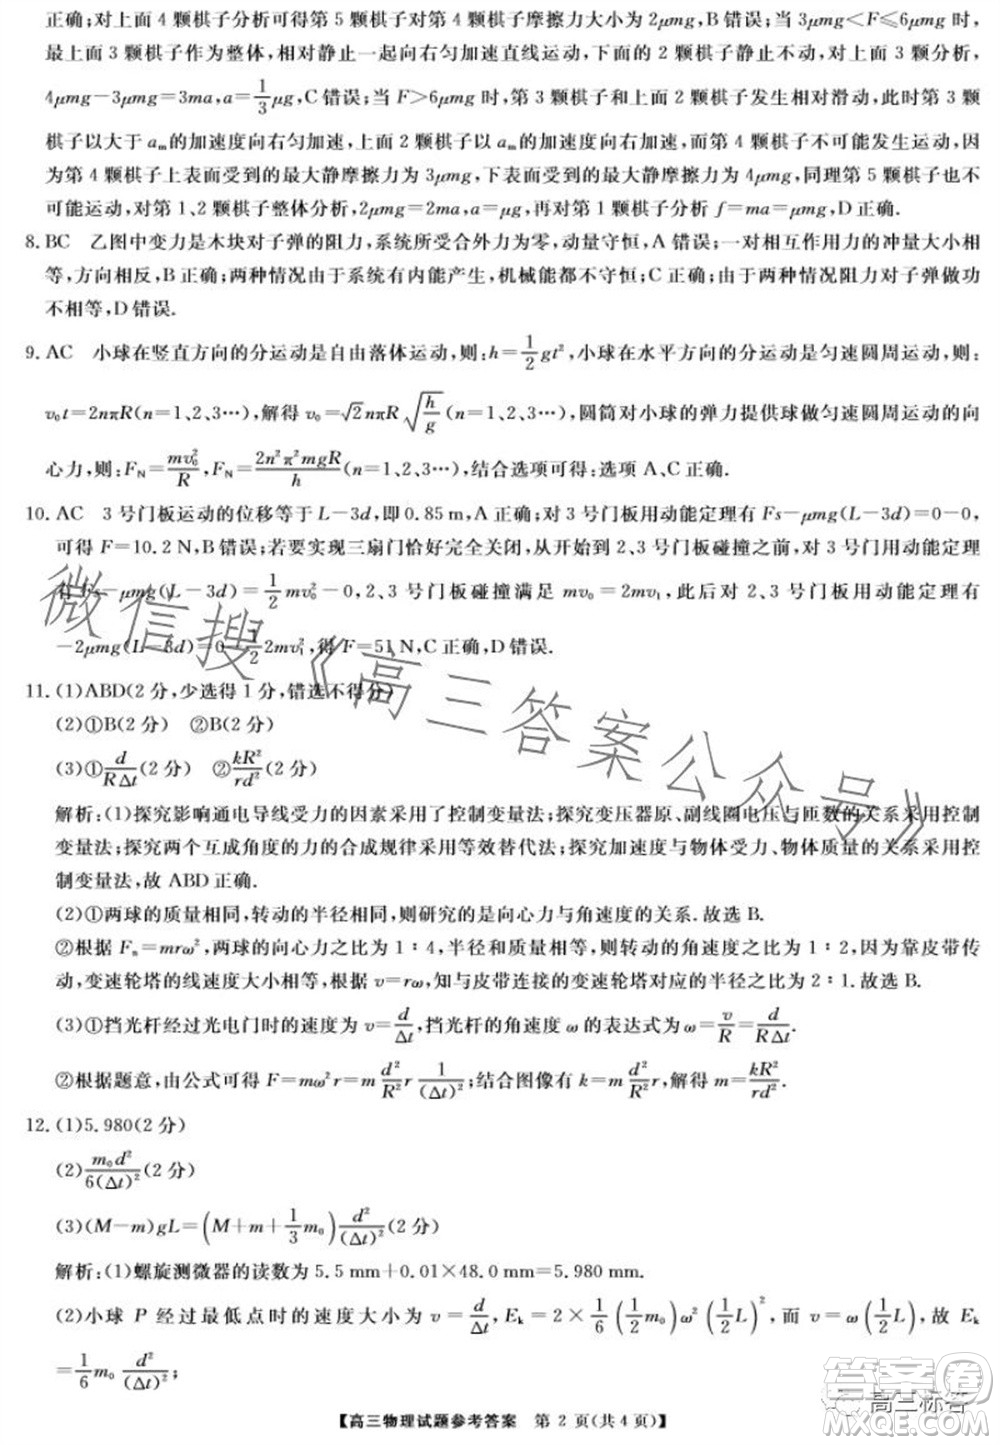 正确;对上面 4 颗棋子分析可得第 5 颗棋子对第 4 颗棋子摩擦力大小为 2μmg,B 错误;当 3μmg<F≤6μmg 时,
最上面 3 颗棋子作为整体,相对静止一起向右匀加速直线运动,下面 2 颗棋子静止不动,对上面 3 颗分析,
4μmg-3μmg=3ma,a=1/3μg,C 错误;当 F>6μmg 时,第 3 颗棋子和上面 2 颗棋子发生相对滑动,此时第 3 颗
棋子以大于 aₘ 的加速度向右匀加速,上面 2 颗棋子以 aₘ 的加速度向右匀加速,而第 4 颗棋子不可能发生运动,因
为第 4 颗棋子上表面受到的最大静摩擦力为 3μmg,下表面受到的最大静摩擦力为 4μmg,同理第 5 颗棋子也不
可能运动,对第 1、2 颗棋子整体分析,2μmg=2ma,a=μg,再对第 1 颗棋子分析 f=ma=μmg,D 正确.
8. BC 乙图中变力是木块对子弹的阻力,系统所受合外力为零,动量守恒,A 错误;一对相互作用力的冲量大小相
等,方向相反,B 正确;两种情况由于系统有内能产生,机械能都不守恒;C 正确;由于两种情况阻力对子弹做功
不相等,D 错误.
9. AC 小球在竖直方向的分运动是自由落体运动,则:h=1/2gt²,小球在水平方向的分运动是匀速圆周运动,则:
v₀t=2nπR(n=1、2、3…),解得 v₀=√2nπR√(h/g)(n=1、2、3…),圆筒对小球的弹力提供球做匀速圆周运动的向
心力,则:F_N=mv₀²/R,F_N=2n²π²mgR/h(n=1、2、3…),结合选项可得:选项 A、C 正确.
10. AC 3 号门板运动的位移等于 L-3d,即 0.85 m,A 正确;对 3 号门板用动能定理有 Fs-μmg(L-3d)=0-0,
可得 F=10.2 N,B 错误;若要实现三扇门恰好完全关闭,从开始到 2、3 号门板碰撞之前,对 3 号门板用动能定理
有 Fs-μmg(L-3d)=1/2mv₀²-0,2、3 号门板碰撞满足 mv₀=2mv₁,此后对 2、3 号门板用动能定理有
-2μmg(L-3d)=0-1/2 2mv₁²,得 F=51 N,C 正确,D 错误.
11. (1)ABD(2 分,少选得 1 分,错选不得分)
(2)①B(2 分) ②B(2 分)
(3)①d/(RΔt)(2 分) ②kR²/(rd²)(2 分)
解析:(1)探究影响通电导线受力的因素采用了控制变量法;探究变压器原、副线圈电压与匝数的关系采用控制
变量法;探究两个互成角度的力的合成规律采用等效替代法;探究加速度与物体受力、物体质量的关系采用控
制变量法,故 ABD 正确.
(2)①两球的质量相同,转动的半径相同,则研究的是向心力与角速度的关系.故选 B.
②根据 Fₙ=mrω²,两球的向心力之比为 1∶4,半径和质量相等,则转动的角速度之比为 1∶2,因为靠皮带传
动,变速轮塔的线速度大小相等,根据 v=rω,知与皮带连接的变速轮塔对应的半径之比为 2∶1.故选 B.
(3)①挡光杆经过光电门时的速度为 v=d/Δt,挡光杆的角速度 ω 的表达式为 ω=v/R=d/(RΔt).
②根据题意,由公式可得 F=mω²r=m d²/R² r 1/(Δt)²;结合图像有 k=m d²/R² r,解得 m=kR²/(rd²).
12. (1)5.980(2 分)
(2)m₀d²/(6(Δt)²)(2 分)
(3)(M-m)gL=(M+m+1/3m₀)d²/(Δt)²(2 分)
解析:(1)螺旋测微器的读数为 5.5 mm+0.01×48.0 mm=5.980 mm.
(2)小球 P 经过最低点时的速度大小为 v=d/Δt,E_k=2×1/6(1/2m₀)ω²(1/2L)²,而 v=ω(1/2L),故 E_k
=1/6m₀ d²/(Δt)²;
【高三物理试题参考答案 第 2 页(共 4 页)】
微信搜《高三答案公众号》
答案圈
MXQE.COM
高三标答